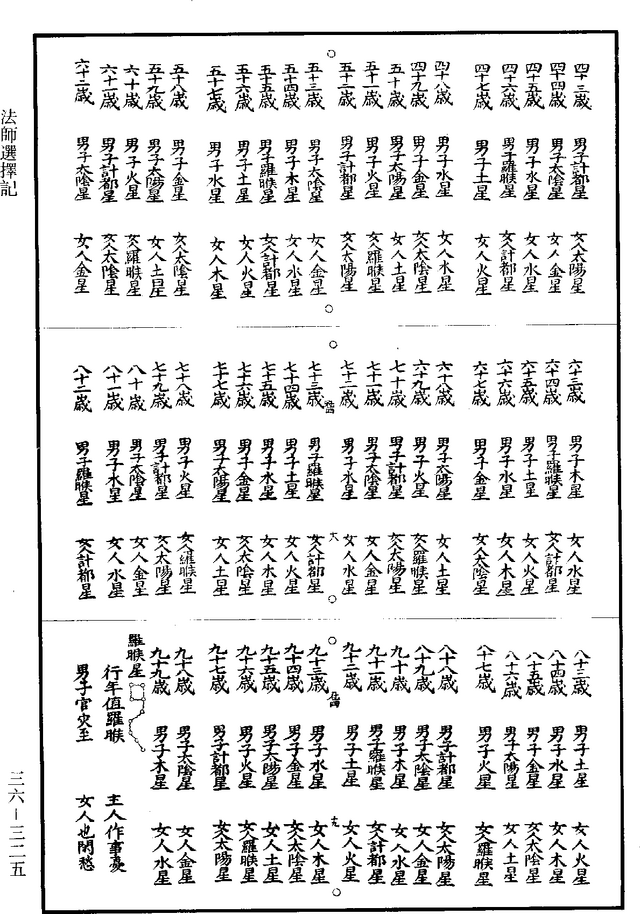 四十三歲 男子計都星 女人太陽星
四十四歲 男子太陰星 女人金星
四十五歲 男子木星 女人水星
四十六歲 男子羅睺星 女人計都星
四十七歲 男子土星 女人火星
四十八歲 男子水星 女人木星
四十九歲 男子金星 女人太陰星
五十歲 男子太陽星 女人土星
五十一歲 男子火星 女人羅睺星
五十二歲 男子計都星 女人太陽星
五十三歲 男子太陰星 女人金星
五十四歲 男子木星 女人水星
五十五歲 男子羅睺星 女人計都星
五十六歲 男子土星 女人火星
五十七歲 男子水星 女人木星
五十八歲 男子金星 女人太陰星
五十九歲 男子太陽星 女人土星
六十歲 男子火星 女人羅睺星
六十一歲 男子計都星 女人太陰星
六十二歲 男子太陰星 女人金星
六十三歲 男子木星 女人水星
六十四歲 男子羅睺星 女人計都星
六十五歲 男子土星 女人火星
六十六歲 男子水星 女人木星
六十七歲 男子金星 女人太陰星
六十八歲 男子太陽星 女人土星
六十九歲 男子火星 女人羅睺星
七十歲 男子計都星 女人太陽星
七十一歲 男子太陰星 女人金星
七十二歲 男子水星 女人水星
七十三歲 男子羅睺星 女人計都星
七十四歲 男子土星 女人火星
七十五歲 男子水星 女人木星
七十六歲 男子金星 女人太陰星
七十七歲 男子太陽星 女人土星
七十八歲 男子火星 女人羅睺星
七十九歲 男子計都星 女人太陽星
八十歲 男子太陰星 女人金星
八十一歲 男子木星 女人水星
八十二歲 男子羅睺星 女人計都星
八十三歲 男子土星 女人火星
八十四歲 男子水星 女人木星
八十五歲 男子金星 女人太陰星
八十六歲 男子太陽星 女人土星
八十七歲 男子火星 女人羅睺星
八十八歲 男子計都星 女人太陽星
八十九歲 男子太陰星 女人金星
九十歲 男子木星 女人水星
九十一歲 男子羅睺星 女人計都星
九十二歲 男子土星 女人火星
九十三歲 男子水星 女人木星
九十四歲 男子金星 女人太陰星
九十五歲 男子太陽星 女人土星
九十六歲 男子火星 女人羅睺星
九十七歲 男子計都星 女人太陽星
九十八歲 男子太陰星 女人金星
九十九歲 男子木星 女人水星
羅睺星
行年值羅睺 主人作事憂
男子官災至 女人也閉愁
法師選擇記
三六－三二五